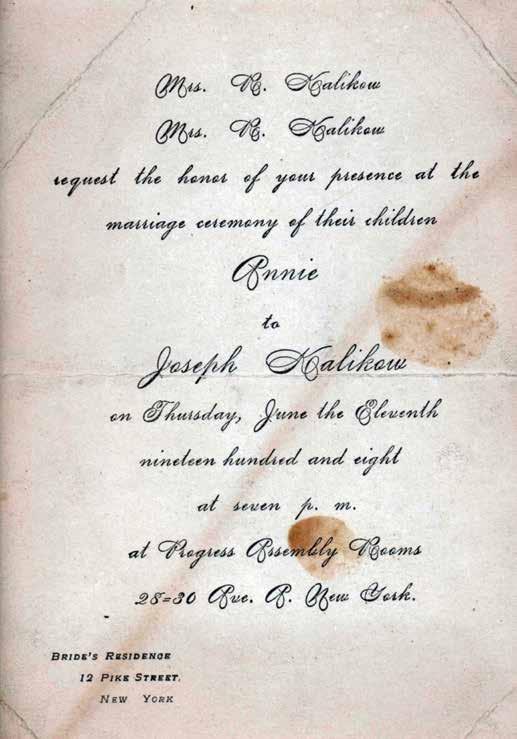 Mrs. R. Kalikow
Mrs. R. Kalikow
request the honor of your presence at the
marriage ceremony of their children
Annie
to
Joseph Kalikow
on Thursday, June the Eleventh
nineteen hundred and eight
at seven p. m.
at Progress Assembly Rooms
28=30 Ave. A. New York.
BRIDE'S RESIDENCE
12 PIKE STREET.
NEW YORK